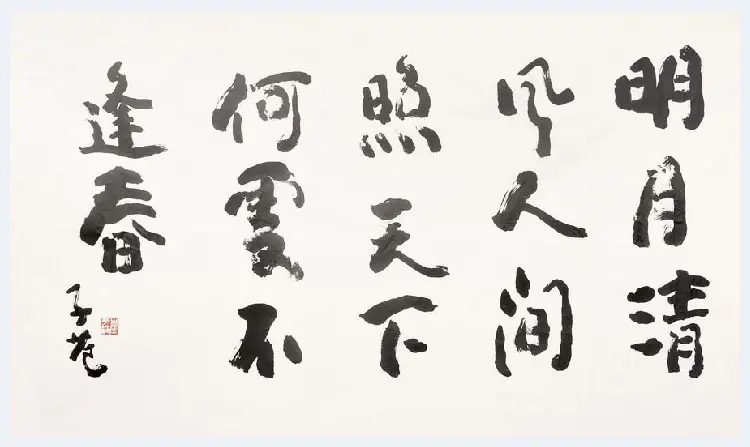 明月清
风人间
照天下
何處不
逢春